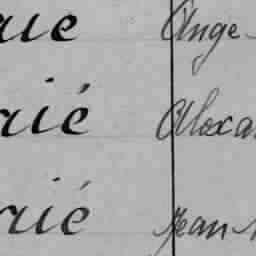 rie Ange
rié Alexa
rié Jean